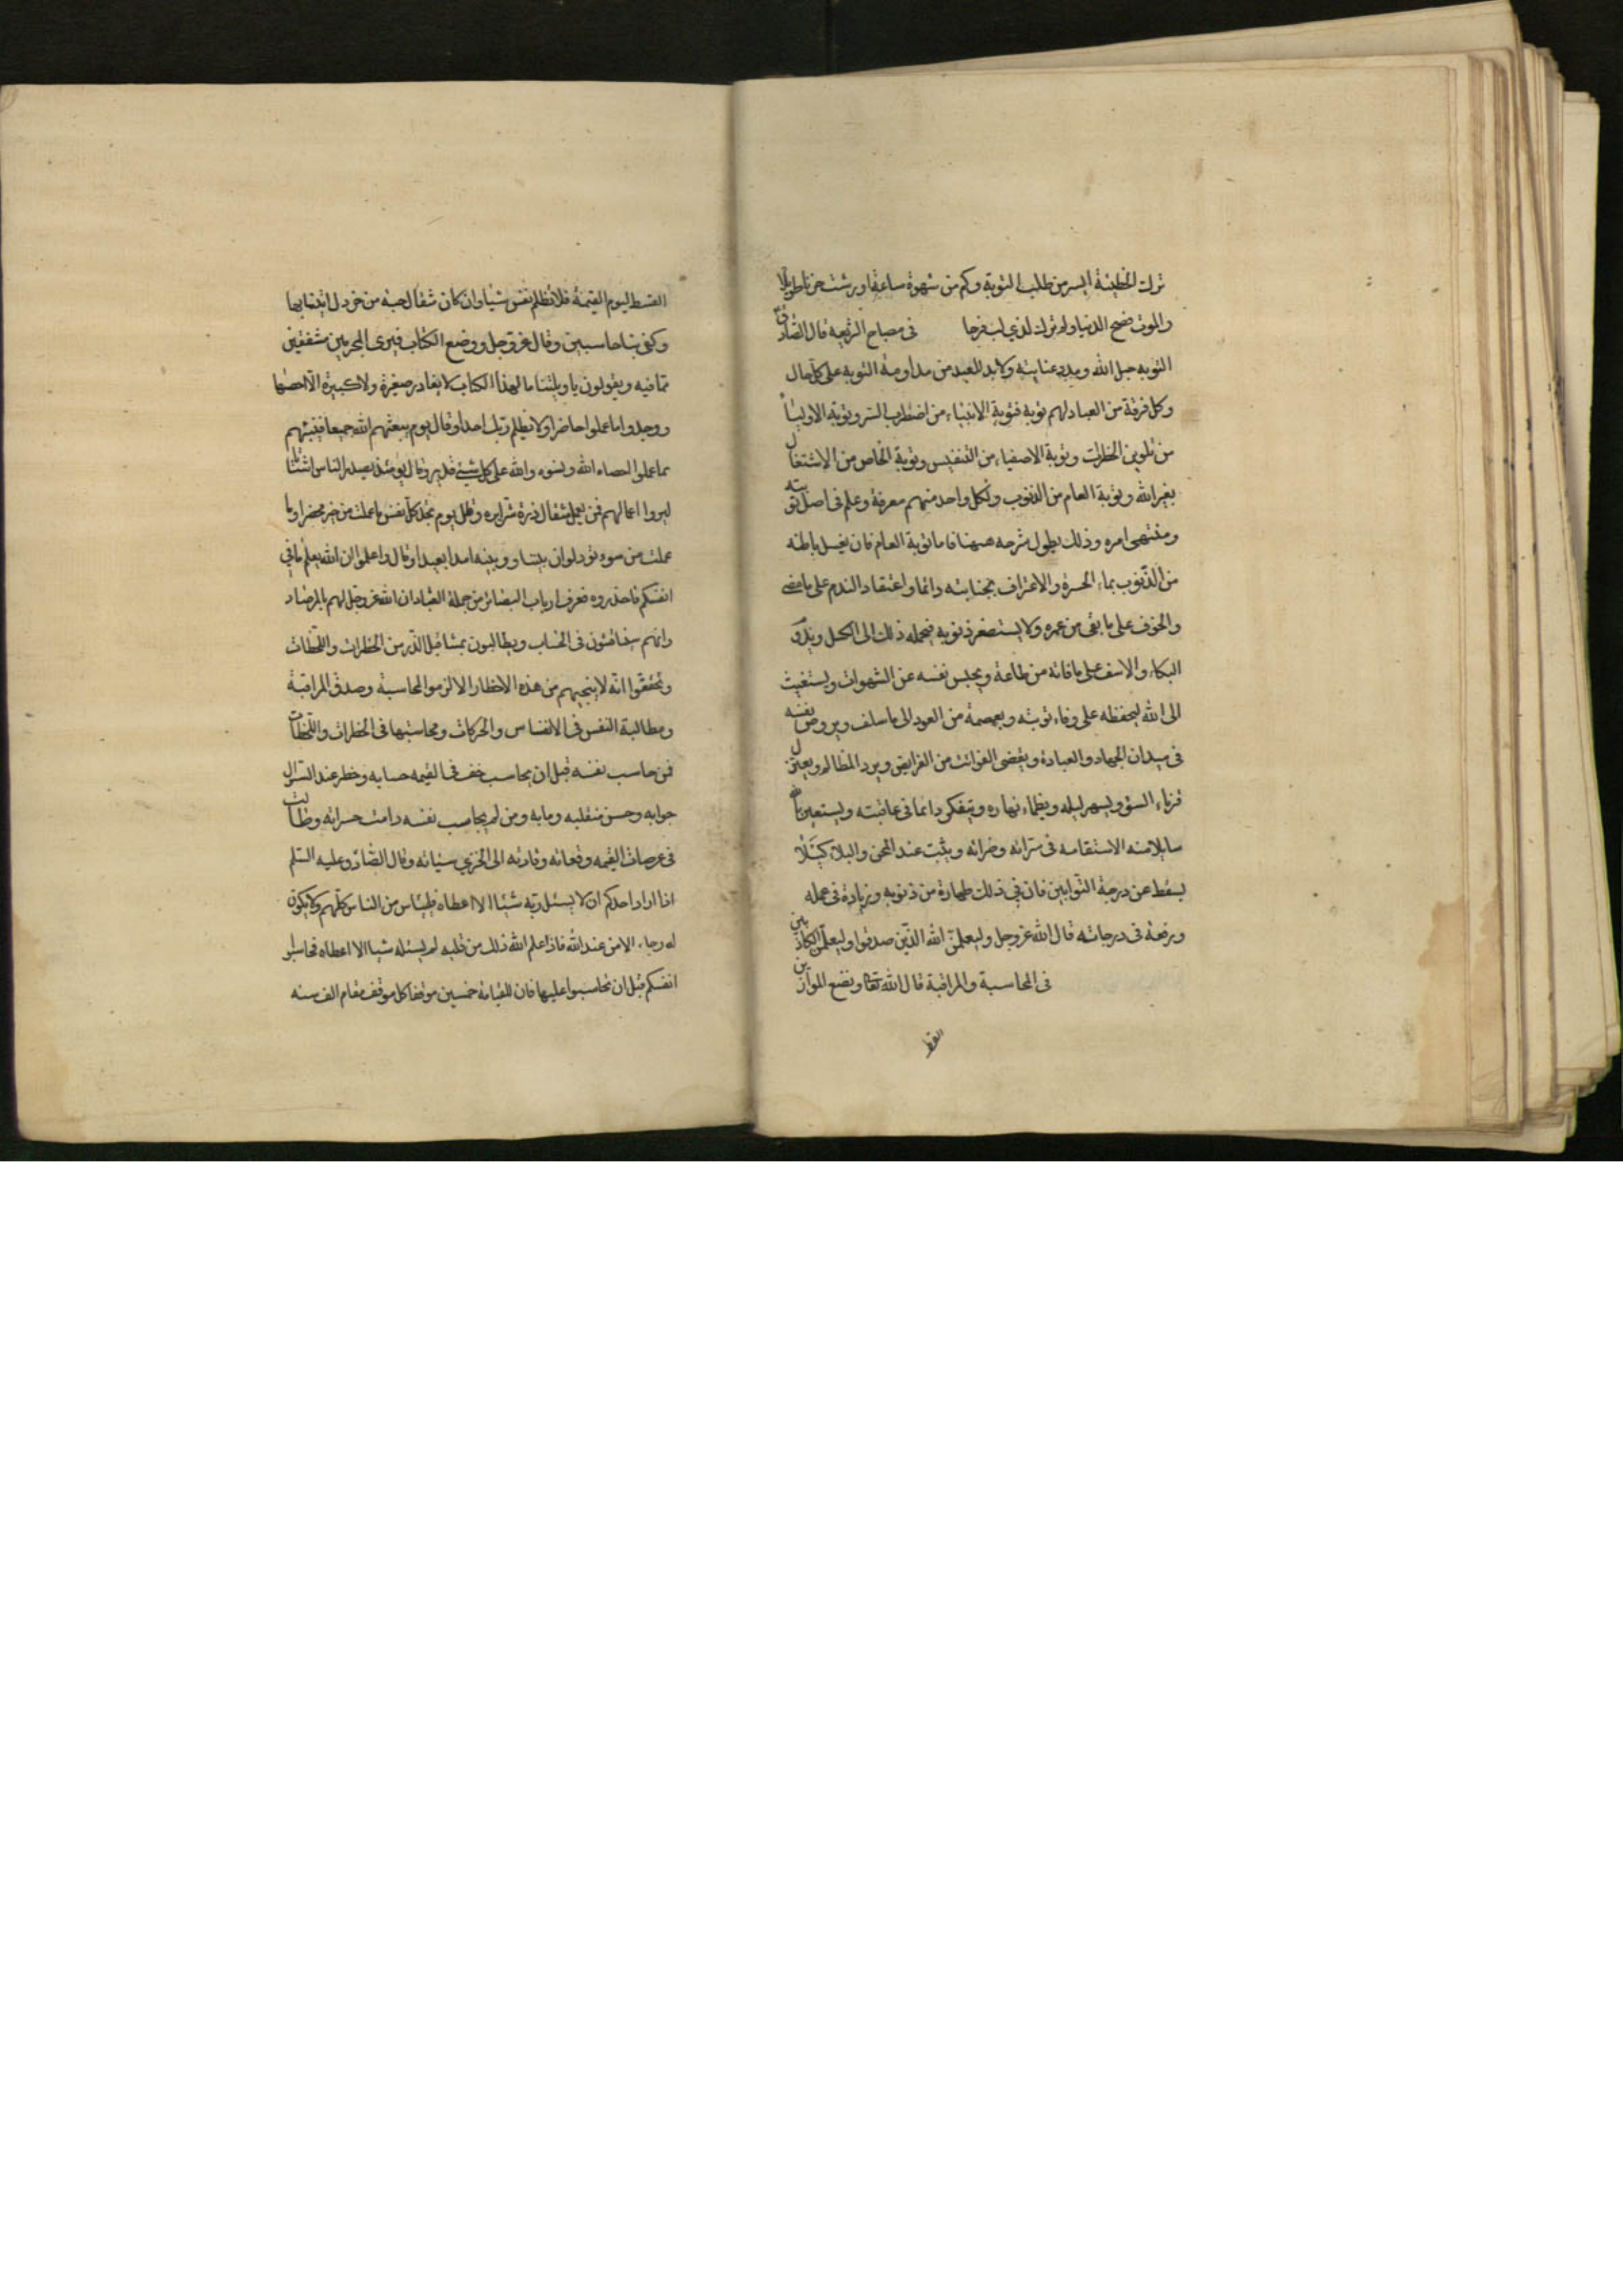 ترك الخطيئة ايسر من طلب التوبة وكم من شهوة ساعة اورثت حزنا طويلا
والموت فضح الدنيا ولم يترك لذي لب فرحا في مصباح الشريعة قال الصادق
التوبة حبل الله ومدد عنايته ولا بد للعبد من مداومة التوبه على كل حال
وكل فرقة من العباد لهم توبة فتوبة الانبياء من اضطراب السر وتوبة الاولياء
من تلوين الخطرات وتوبة الاصفياء من التنفيس وتوبة الخاص من الاشتغال
بغير الله وتوبة العام من الذنوب ولكل واحد منهم معرفة وعلم في اصل توبته
ومنتهى امره وذلك يطول شرحه ههنا فاما توبة العام فان يغسل باطنه
من الذنوب بماء الحسرة والاعتراف بجنايته دائما واعتقاد الندم على ما مضى
والخوف على ما بقي من عمره ولا يستصغر ذنوبه فيحمله ذلك الى الكسل ويديم
البكاء والاسف على ما فاته من طاعة ويحبس نفسه عن الشهوات ويستغيث
الى الله ليحفظه على وفاء توبته ويعصمه من العود الى ما سلف ويروض نفسه
في ميدان الجهاد والعبادة ويقضي الفوائت من الفرايض ويرد المظالم ويعتزل
قرناء السؤ ويسهر ليله ويظماء نهاره ويتفكر دائما في عاقبته ويستعين بالله
سايلا منه الاستقامه في سرائه وضرائه ويثبت عند المحن والبلاء كيلا
يسقط عن درجة التوابين فان في ذلك طهارة من ذنوبه وزيادة في عمله
ورفعة في درجاته قال الله عز وجل وليعلمن الله الذين صدقوا وليعلمن الكاذبين
في المحاسبة والمراقبة قال الله تعالى ونضع الموازين
القسط
القسط ليوم القيمة فلا تظلم نفس شيئا وان كان مثقال حبة من خردل اتينا بها
وكفى بنا حاسبين وقال عز وجل ووضع الكتاب فترى المجرمين مشفقين
مما فيه ويقولون يا ويلتنا ما لهذا الكتاب لا يغادر صغيرة ولا كبيرة الا احصيها
ووجدوا ما عملوا حاضرا ولا يظلم ربك احدا وقال يوم يبعثهم الله جميعا فينبئهم
بما عملوا احصاه الله ونسوه والله على كل شيئ قدير وقال يومئذ يصدر الناس اشتاتا
ليروا اعمالهم فمن يعمل مثقال ذرة شرا يره وقال يوم تجد كل نفس ما عملت من خير محضرا وما
عملت من سوء تود لو ان بينها وبينه امدا بعيدا وقال واعلموا ان الله يعلم ما في
انفسكم فاحذروه فعرف ارباب البصائر من جملة العباد ان الله عز وجل لهم بالمرصاد
وانهم سيناقشون في الحساب ويطالبون بمثاقيل الذر من الخطرات واللحظات
وتحققوا انه لا ينجيهم من هذه الاخطار الا لزوم المحاسبة وصدق المراقبة
ومطالبة النفس في الانفاس والحركات ومحاسبتها في الخطرات واللحظات
فمن حاسب نفسه قبل ان يحاسب خف في القيمه حسابه وحضر عند السؤال
جوابه وحسن منقلبه ومابه ومن لم يحاسب نفسه دامت حسراته وطالت
في عرصات القيمه وقفاته وقادته الى الخزي سيئاته وقال الصادق عليه السلم
اذا اراد احدكم ان لا يسئل ربه شيئا الا اعطاه فلييأس من الناس كلهم ولا يكون
له رجاء الا من عند الله فاذا علم الله ذلك من قلبه لم يسئله شيئا الا اعطاه فحاسبوا
انفسكم قبل ان تحاسبوا عليها فان للقيامة خمسين موقفا كل موقف مقام الف سنه